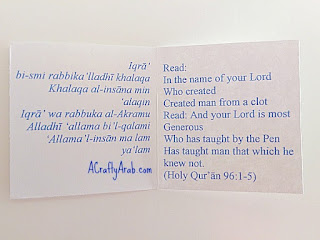 Iqrā’
bi-smi rabbika’lladhī khalaqa
Khalaqa al-insāna min
‘alaqin
Iqrā’ wa rabbuka al-Akramu
Alladhī ‘allama bi’l-qalami
‘Allama’l-insān ma lam
ya‘lam
ACraftyArab.com
Read:
In the name of your Lord
Who created
Created man from a clot
Read: And your Lord is most
Generous
Who has taught by the Pen
Has taught man that which he
knew not.
(Holy Qur’ān 96:1-5)